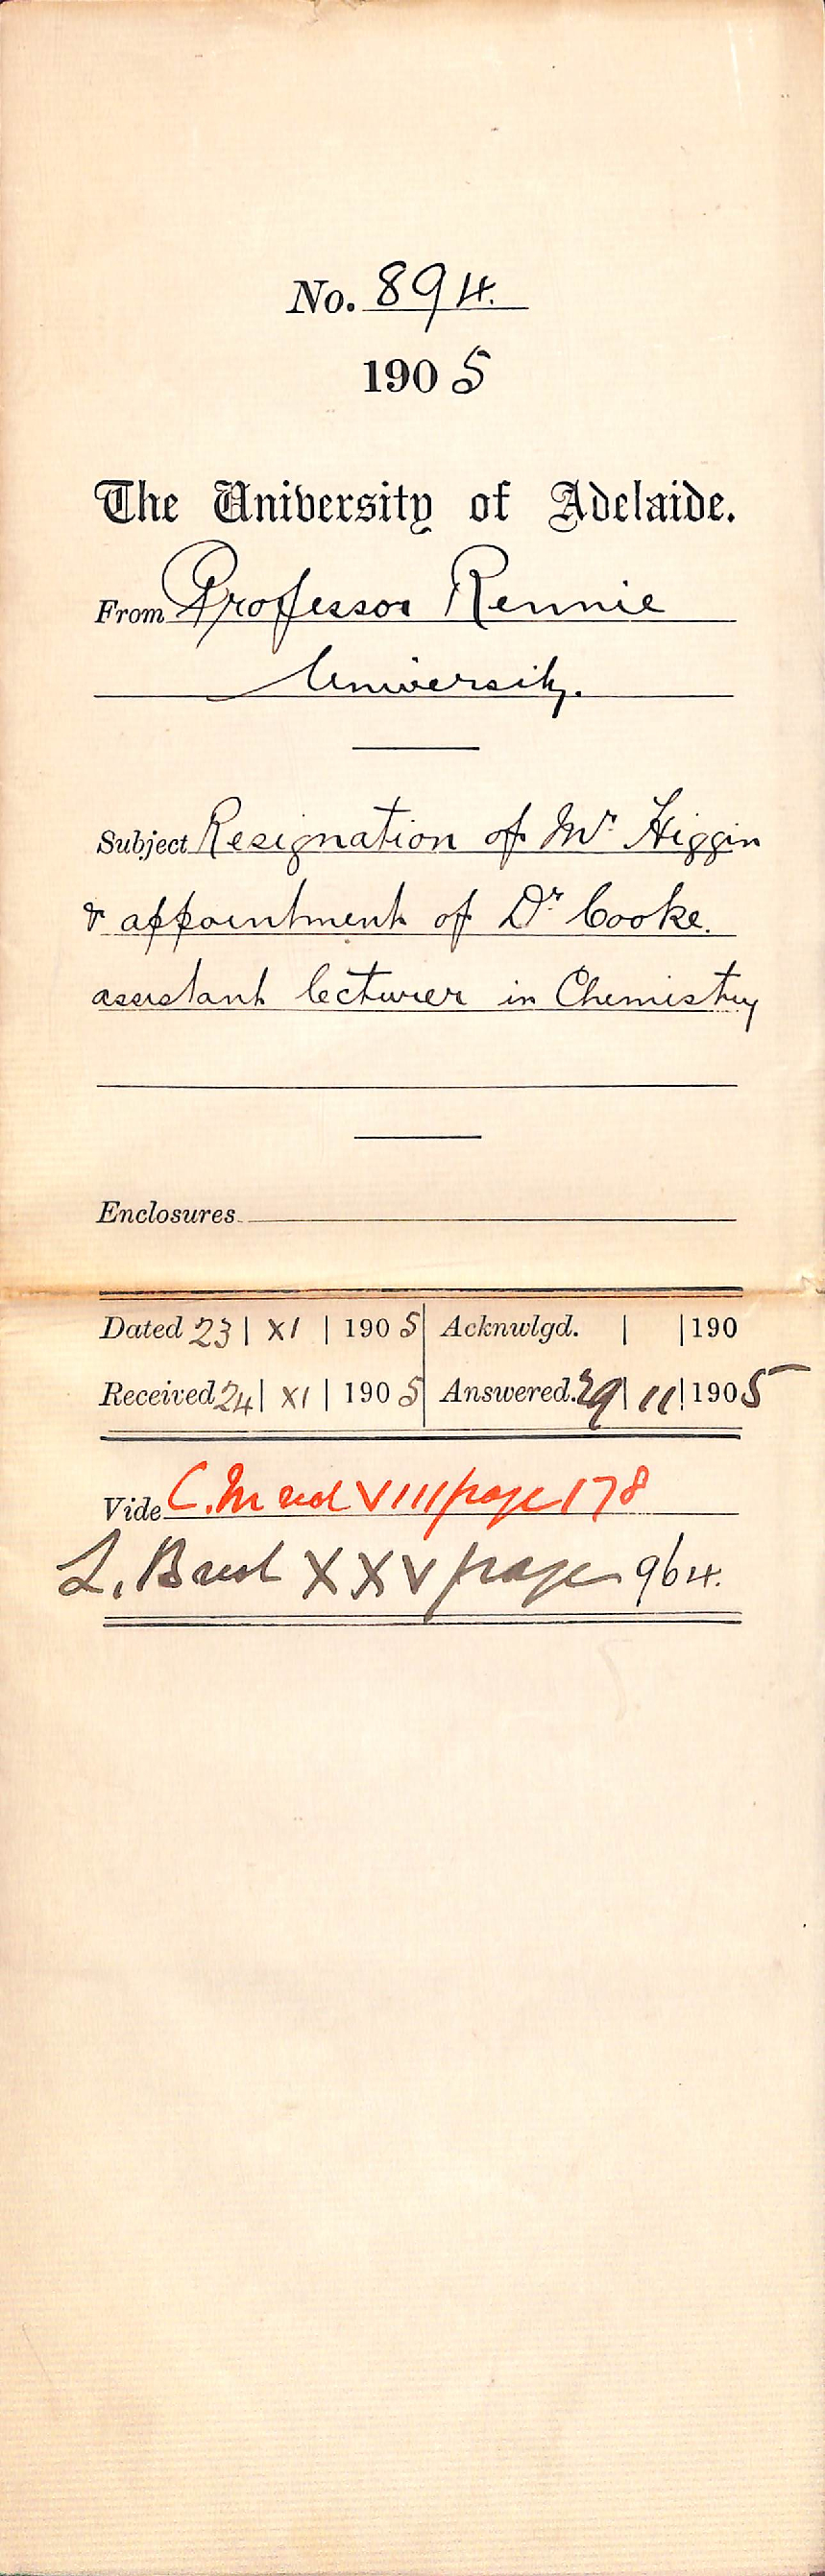 No. 894.
1905
The University of Adelaide.
From Professor Rennie
University.
Subject Resignation of Mr. Higgin
& appointment of Dr. Cooke.
assistant lecturer in Chemistry
Enclosures
Dated 23 | XI | 1905 Acknwlgd. | | 190
Received 24 | XI | 1905 Answered. 29 | 11 | 1905
Vide C.M vol VIII page 178
L. B vol XXV page 964.